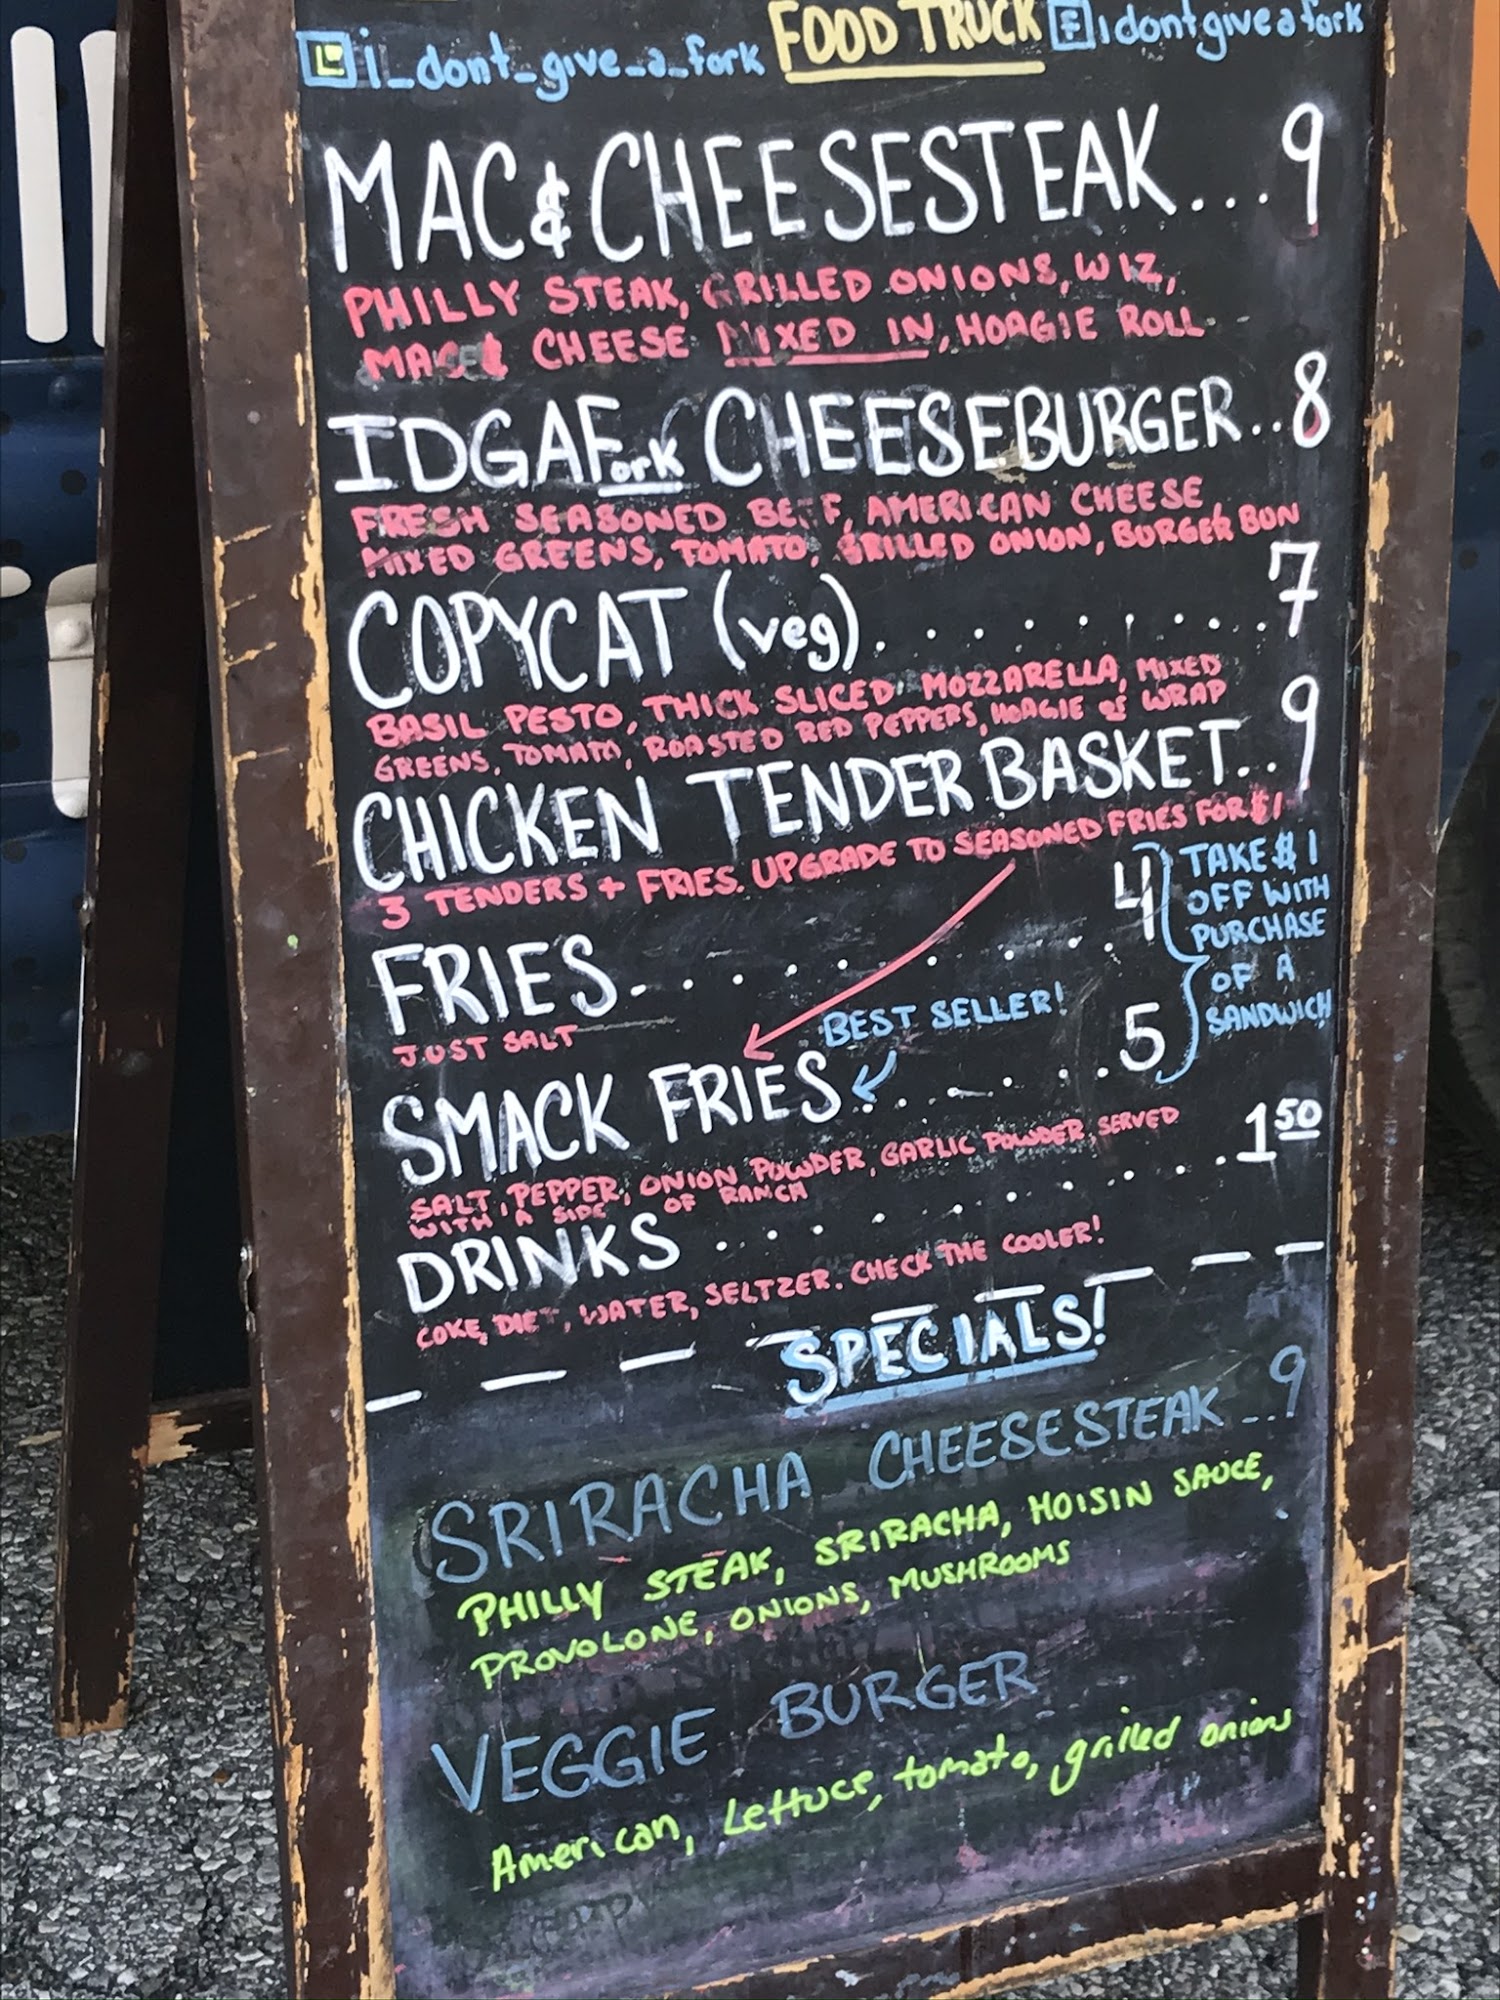 i_dont_give_a_fork FOOD TRUCK idontgiveafork
MAC & CHEESESTEAK...9
PHILLY STEAK, GRILLED ONIONS, WIZ,
MAC & CHEESE MIXED IN, HOAGIE ROLL
IDGAFork CHEESEBURGER..8
FRESH SEASONED BEEF, AMERICAN CHEESE
MIXED GREENS, TOMATO, GRILLED ONION, BURGER BUN
COPYCAT (veg)..........7
BASIL PESTO, THICK SLICED MOZZARELLA, MIXED
GREENS, TOMATO, ROASTED RED PEPPERS, HOAGIE or WRAP
CHICKEN TENDER BASKET..9
3 TENDERS + FRIES. UPGRADE TO SEASONED FRIES FOR $1
FRIES..........4
JUST SALT
TAKE $1
OFF WITH
PURCHASE
OF A
SANDWICH
BEST SELLER!
SMACK FRIES........5
SALT, PEPPER, ONION POWDER, GARLIC POWDER SERVED
WITH A SIDE OF RANCH
DRINKS...........1 50
COKE, DIET, WATER, SELTZER. CHECK THE COOLER!
SPECIALS!
SRIRACHA CHEESESTEAK...9
PHILLY STEAK, SRIRACHA, HOISIN SAUCE,
PROVOLONE, ONIONS, MUSHROOMS
VEGGIE BURGER
American, Lettuce, tomato, grilled onions